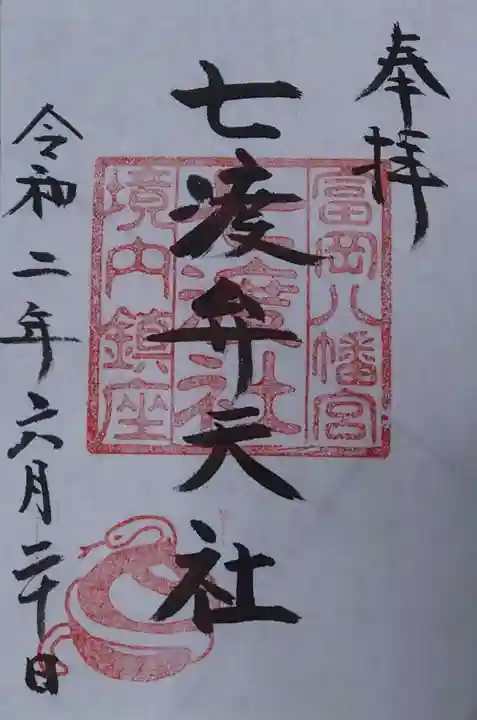 奉拝
七渡弁天社
令和二年六月二十日
富岡八幡宮
七渡社
境内鎮座